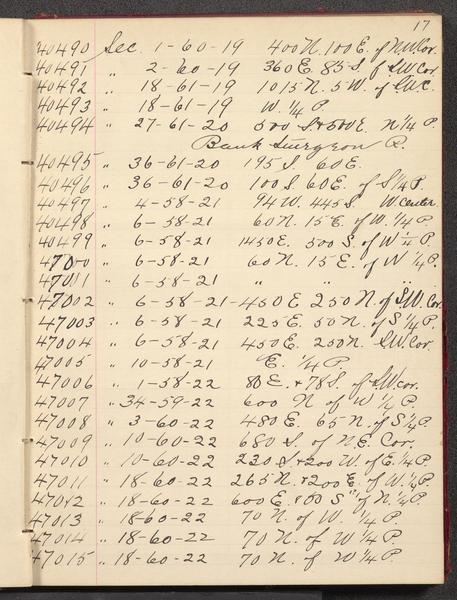 17
40490 Sec. 1-60-19 400 N. 100 E. of N.W Cor.
40491 " 2-60-19 360 E. 85 S. of S.W Cor
40492 " 18-61-19 1015 N. 5 W. of
40493 " 18-61-19 W. 1/4 P.
40494 " 27-61-20 500 S. + 500 E. N 1/4 P.
Bank Sturgeon R.
40495 " 36-61-20 195 S. 60 E.
40496 " 36-61-20 100 S. 60 E. of S 1/4 P.
40497 " 4-58-21 94 W. 445 S. W center
40498 " 6-58-21 60 N. 15 E. of W. 1/4 P.
40499 " 6-58-21 1450 E. 500 S. of W 1/4 P.
47000 " 6-58-21 60 N. 15 E. of W 1/4 P.
47001 " 6-58-21 " " "
47002 " 6-58-21 - 450 E 250 N. of S.W. Cor.
47003 " 6-58-21 225 E. 50 N. of S 1/4 P.
47004 " 6-58-21 450 E. 250 N. S.W. Cor
47005 " 10-58-21 E. 1/4 P.
47006 " 1-58-22 80 E. + 78 S. of S.W. cor.
47007 " 34-59-22 600 N of W 1/4 P.
47008 " 3-60-22 480 E. 65 N. of S 1/4 P.
47009 " 10-60-22 680 S. of N.E. Cor.
47010 " 10-60-22 230 S. + 200 W. of E. 1/4 P.
47011 " 18-60-22 265 N. + 200 E. of W. 1/4 P.
47012 " 18-60-22 600 E. + 00 S " of N. 1/4 P.
47013 " 18-60-22 70 N. of W. 1/4 P.
47014 " 18-60-22 70 N. of W 1/4 P.
47015 " 18-60-22 70 N. of W 1/4 P.